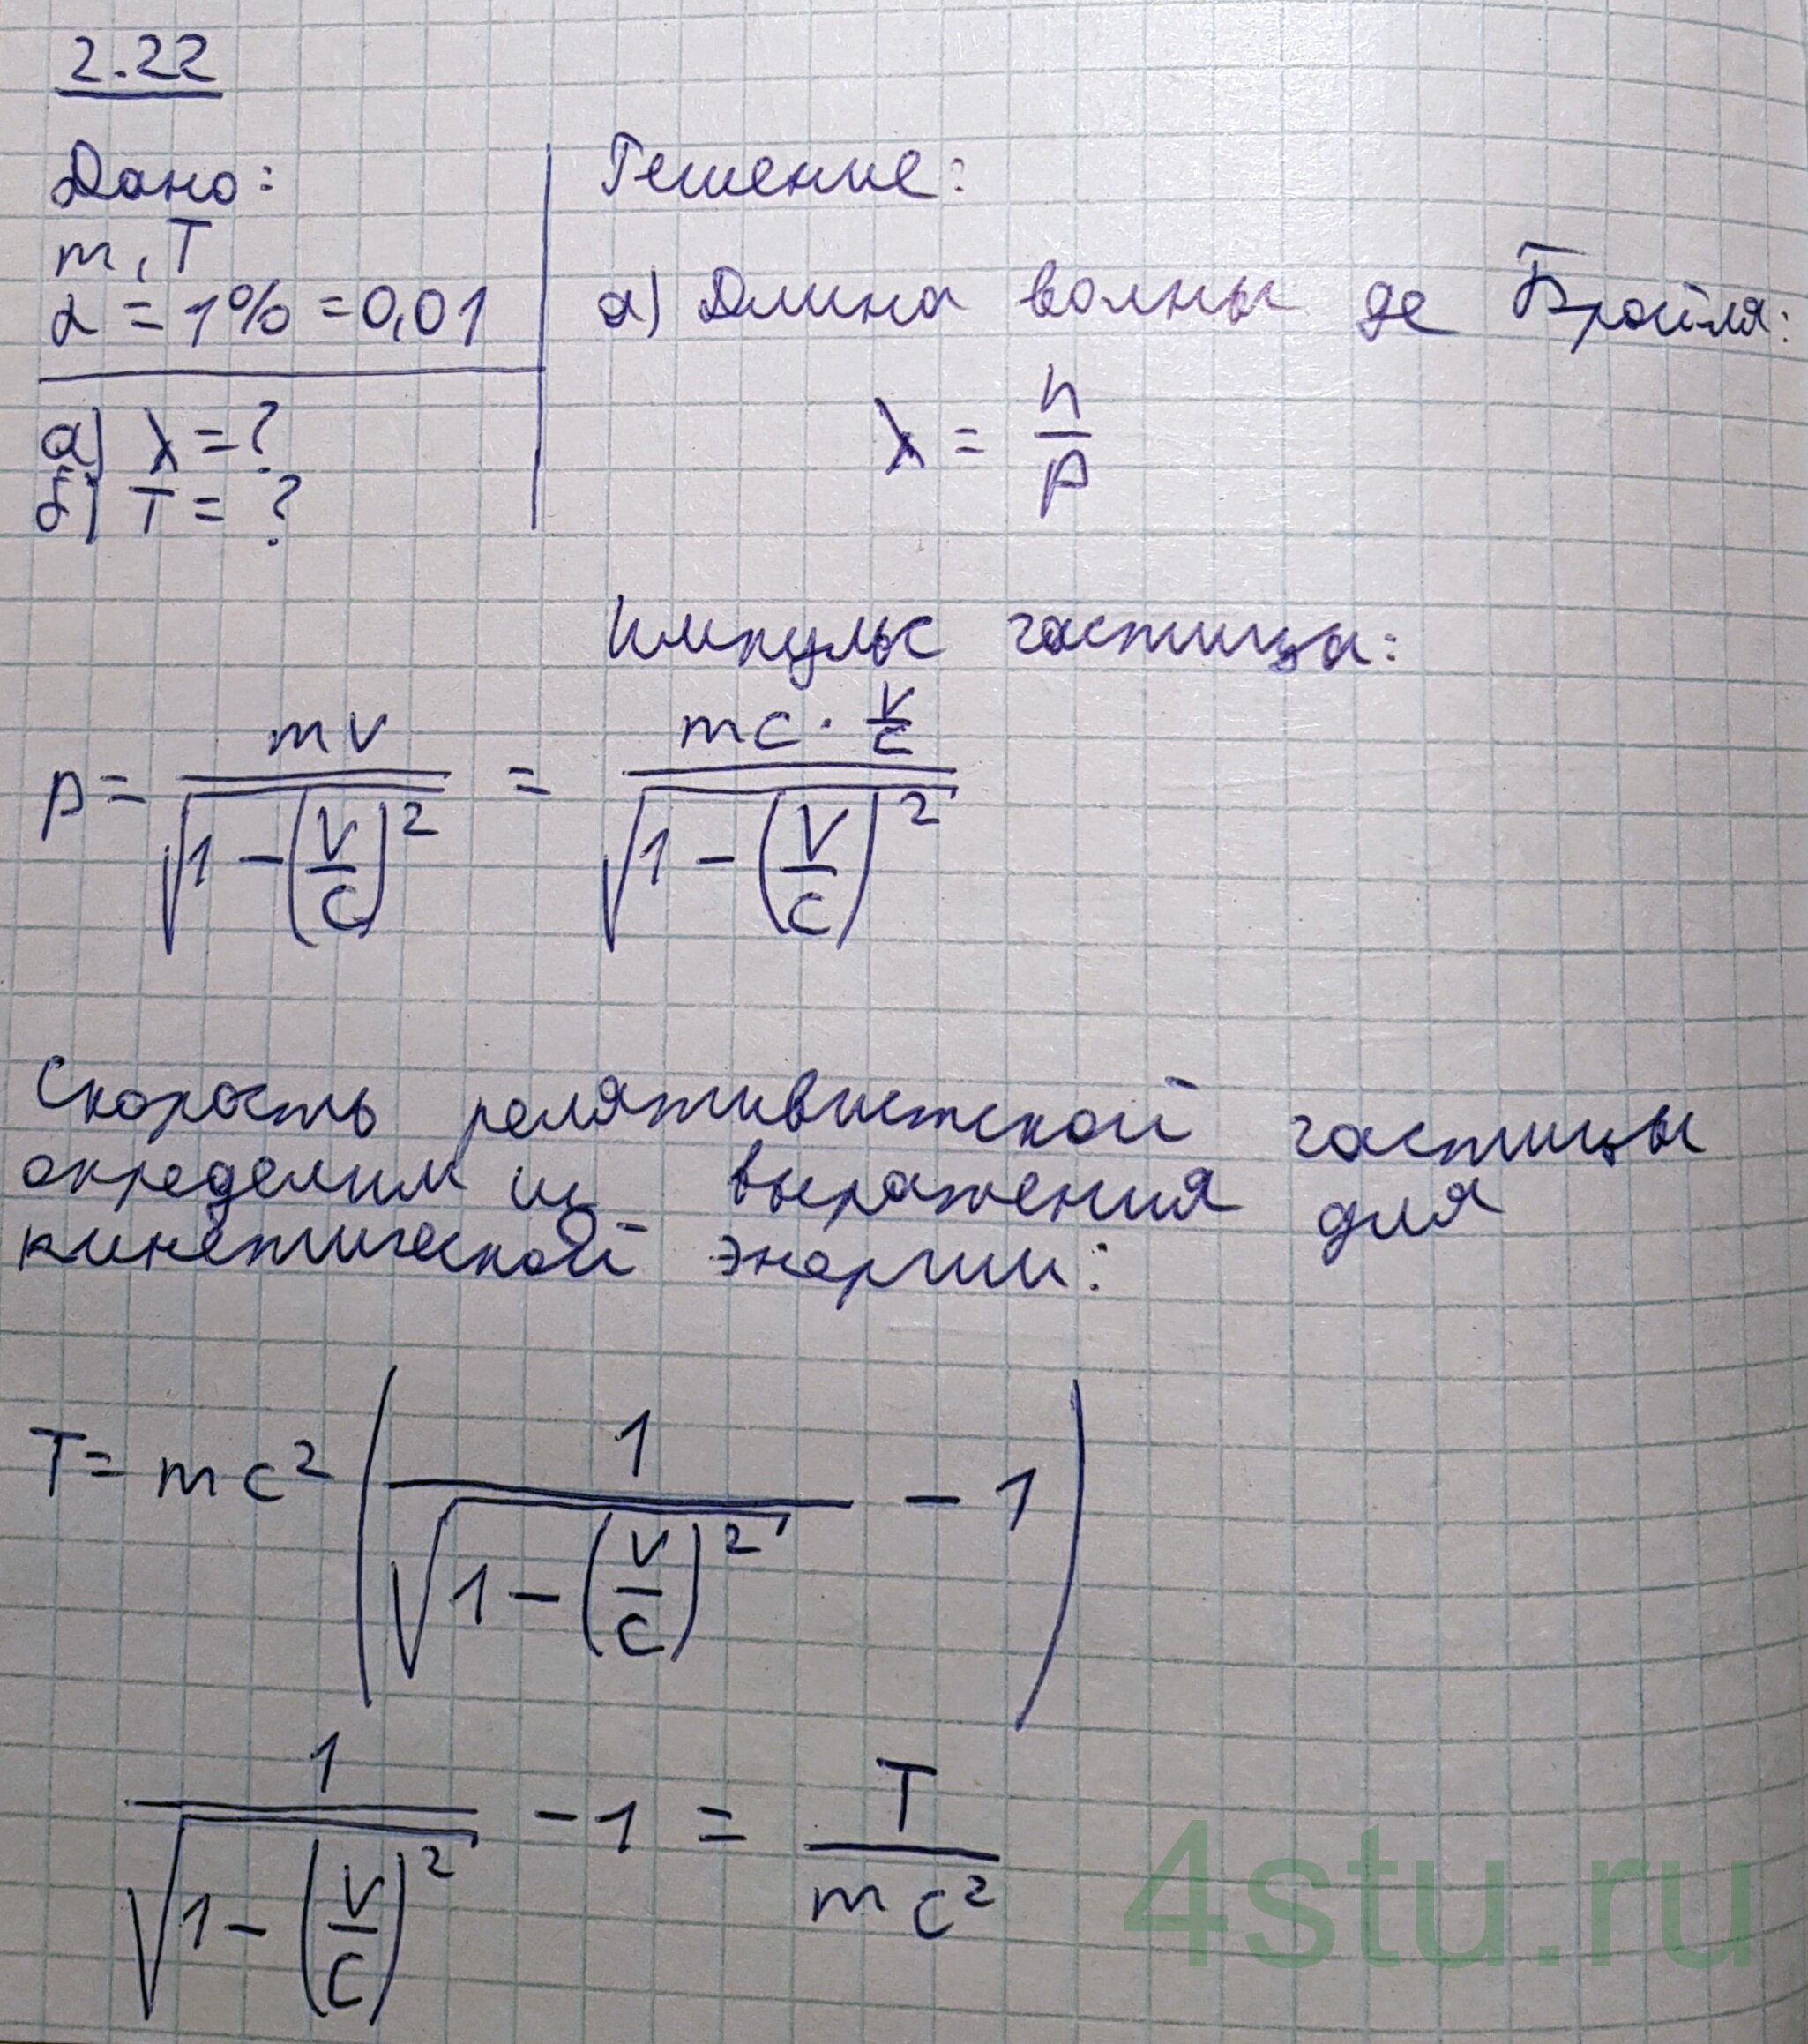 2.22
Дано:
m, T
α = 1% = 0,01
а) λ = ?
б) T = ?
Решение:
а) Длина волны де Бройля:
λ = h/p
Импульс частицы:
p = mv/√(1 - (v/c)²) = mc · v/c / √(1 - (v/c)²)
Скорость релятивистской частицы
определим из выражения для
кинетической энергии:
T = mc² (1/√(1 - (v/c)²) - 1)
1/√(1 - (v/c)²) - 1 = T/mc²
4stu.ru